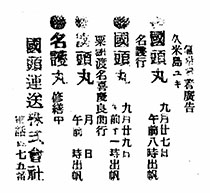 汽船出帆廣告
久米島ユキ
國頭丸 九月廿七日 午前八時出帆
名護行
國頭丸 九月廿九日 午前十一時出帆
粟國渡名喜慶良間行
渡頭丸 月 日 午前 時出帆
名護丸 修繕中
國頭運送株式會社
電話四七五番